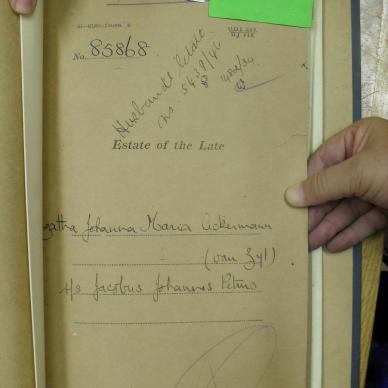 No. 85868
Husbands Estate
No. 5439/46
Estate of the Late
Agatha Johanna Maria Ackermann
(van Zyl)
Jacobus Johannes Petrus